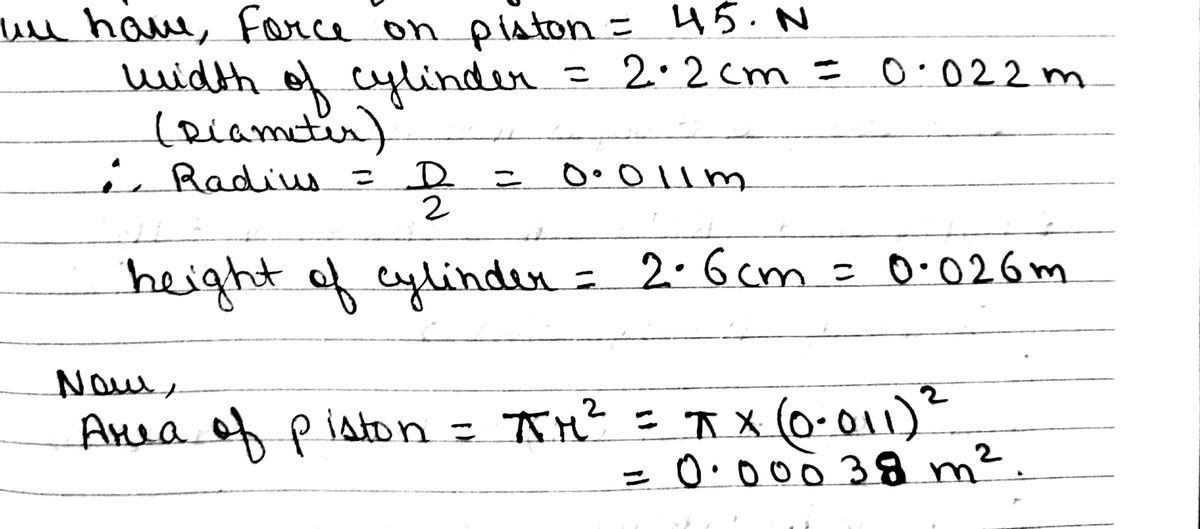 we have, Force on piston = 45. N
width of cylinder = 2.2 cm = 0.022 m
(Diameter)
∴ Radius = D/2 = 0.011 m
height of cylinder = 2.6 cm = 0.026 m
Now,
Area of piston = πr² = π × (0.011)²
= 0.00038 m².